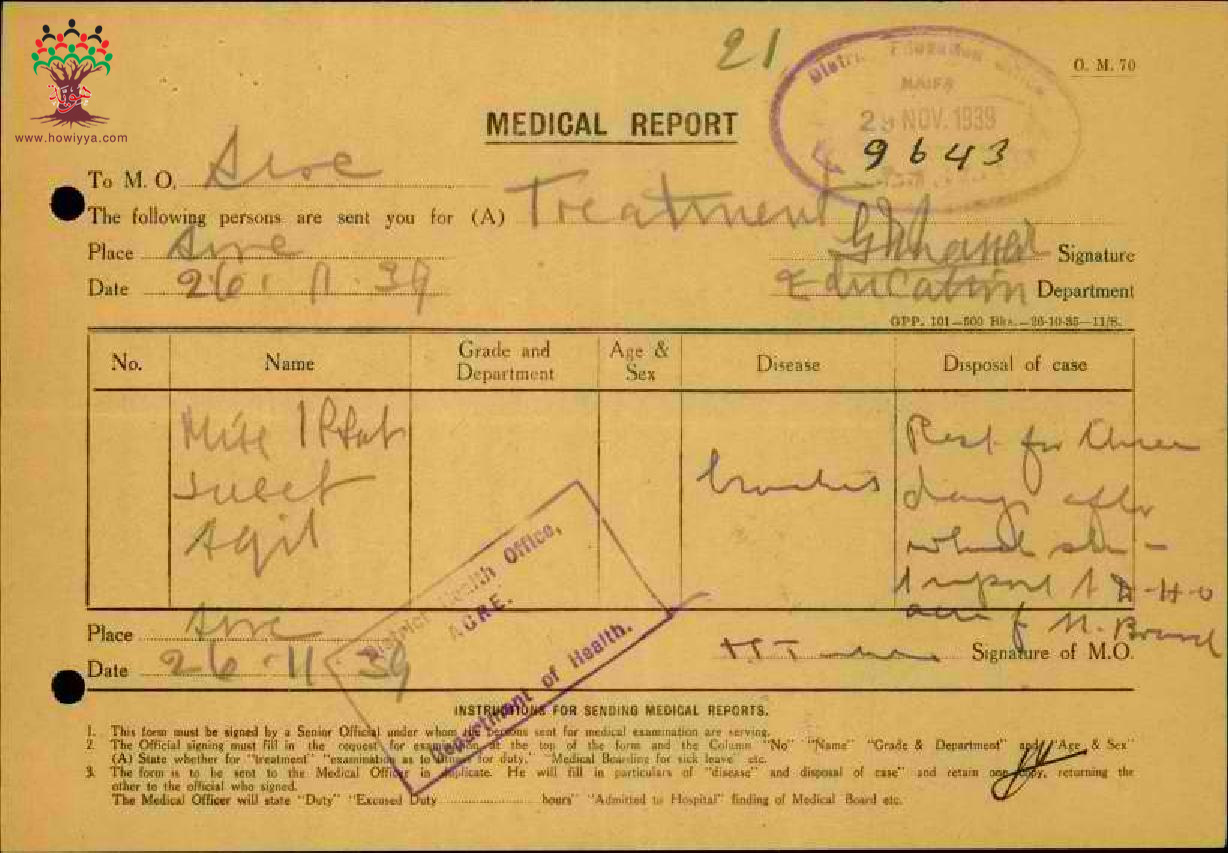 21
O. M. 70
www.howiyya.com
MEDICAL REPORT
HAIFA
29 NOV. 1939
9643
To M. O. Acre
The following persons are sent you for (A) Treatment
Place Acre
Signature
Date 26. 11. 39
Education Department
GPP. 101—500 Bks.—26-10-35—11/S.
No. Name Grade and Department Age & Sex Disease Disposal of case
Miss
Rest for three
days after
which she
report to D.H.O
Acre for M. Board
District Health Office,
ACRE.
Department of Health.
Place Acre
Date 26. 11. 39
Signature of M.O.
INSTRUCTIONS FOR SENDING MEDICAL REPORTS.
1. This form must be signed by a Senior Official under whom the persons sent for medical examination are serving.
2. The Official signing must fill in the request for examination at the top of the form and the Column "No" "Name" "Grade & Department" and "Age & Sex"
(A) State whether for "treatment" "examination as to fitness for duty." "Medical Boarding for sick leave" etc.
3. The form is to be sent to the Medical Officer in duplicate. He will fill in particulars of "disease" and disposal of case" and retain one copy, returning the
other to the official who signed.
The Medical Officer will state "Duty" "Excused Duty ........................ hours" "Admitted to Hospital" finding of Medical Board etc.